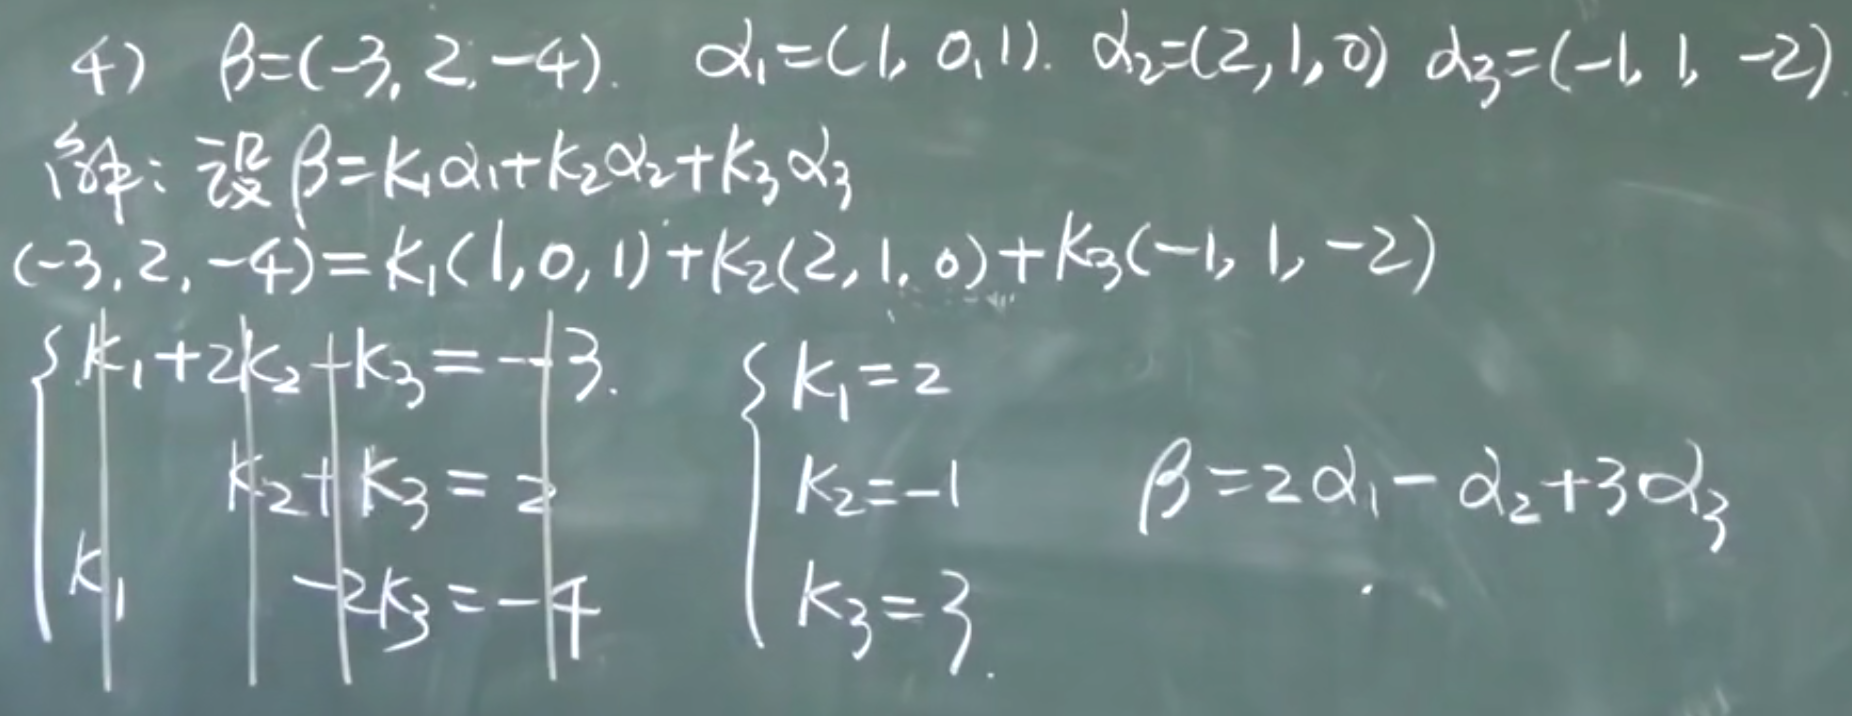 4) β=(-3,2,-4). α₁=(1,0,1). α₂=(2,1,0) α₃=(-1,1,-2).
解：设β=k₁α₁+k₂α₂+k₃α₃
(-3,2,-4)=k₁(1,0,1)+k₂(2,1,0)+k₃(-1,1,-2)
{k₁+2k₂+k₃=-3.
k₂+k₃=2
k₁ -2k₃=-4
{k₁=2
k₂=-1
k₃=3.
β=2α₁-α₂+3α₃